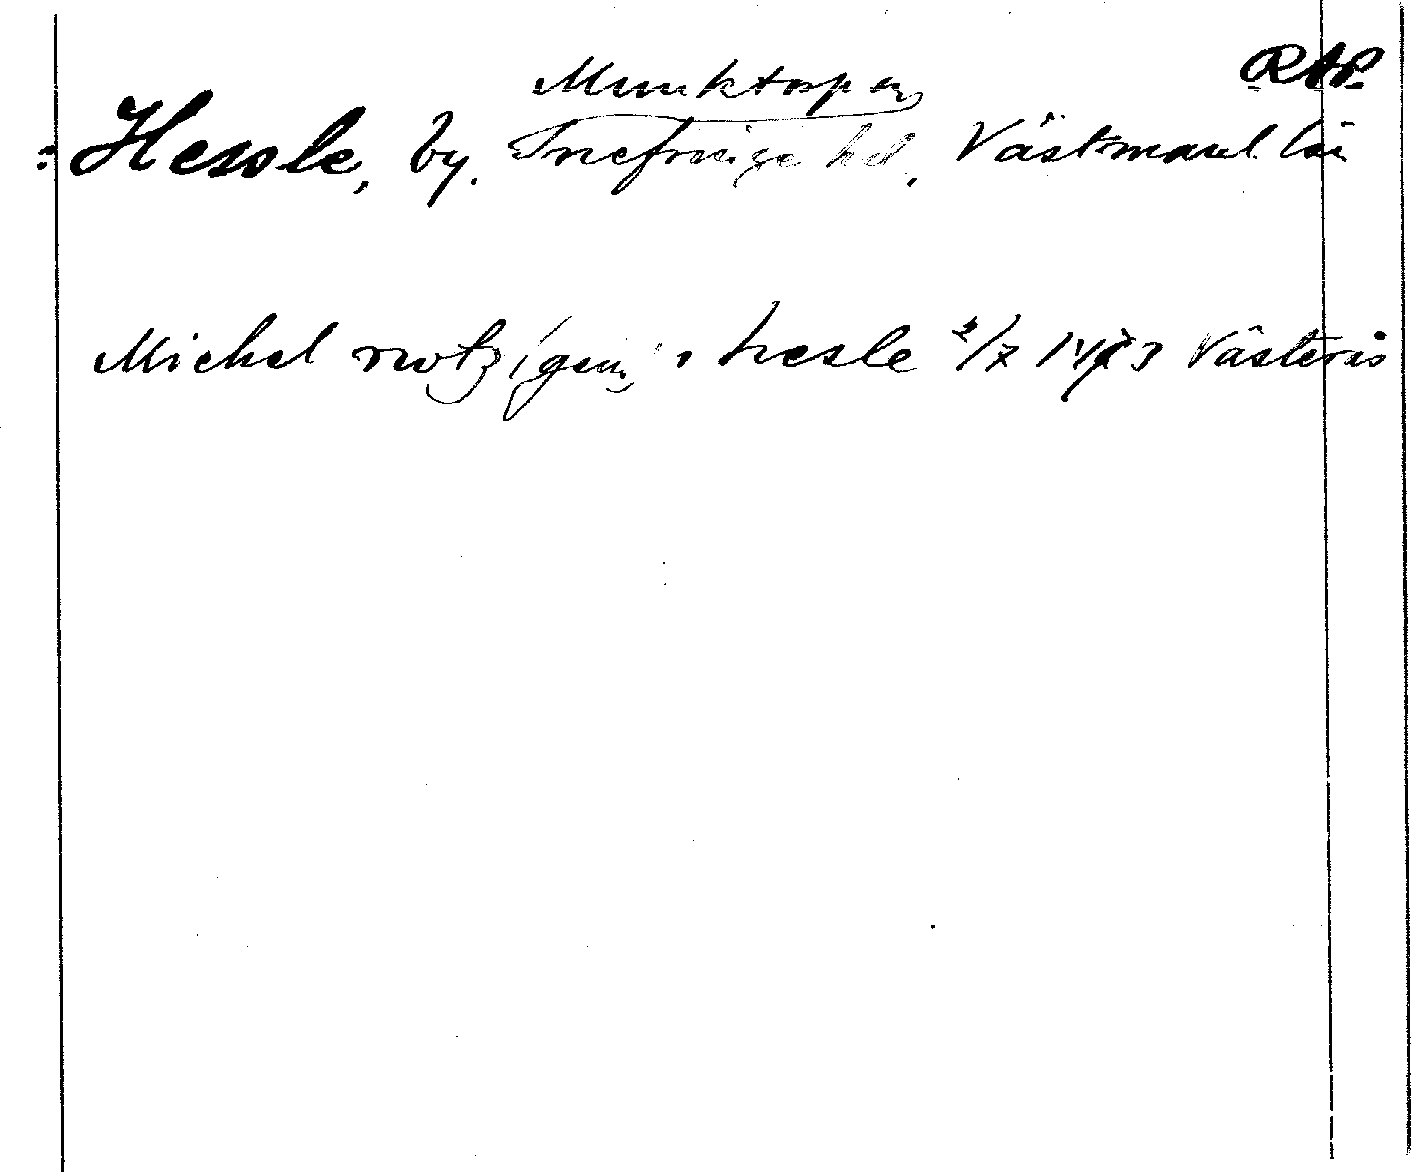 RAP.
Munktorp sn
Hessle, by. Snefringe hd, Västmanl. län
Michel rwtz (gen.) i hesle 2/7 1473 Västerås